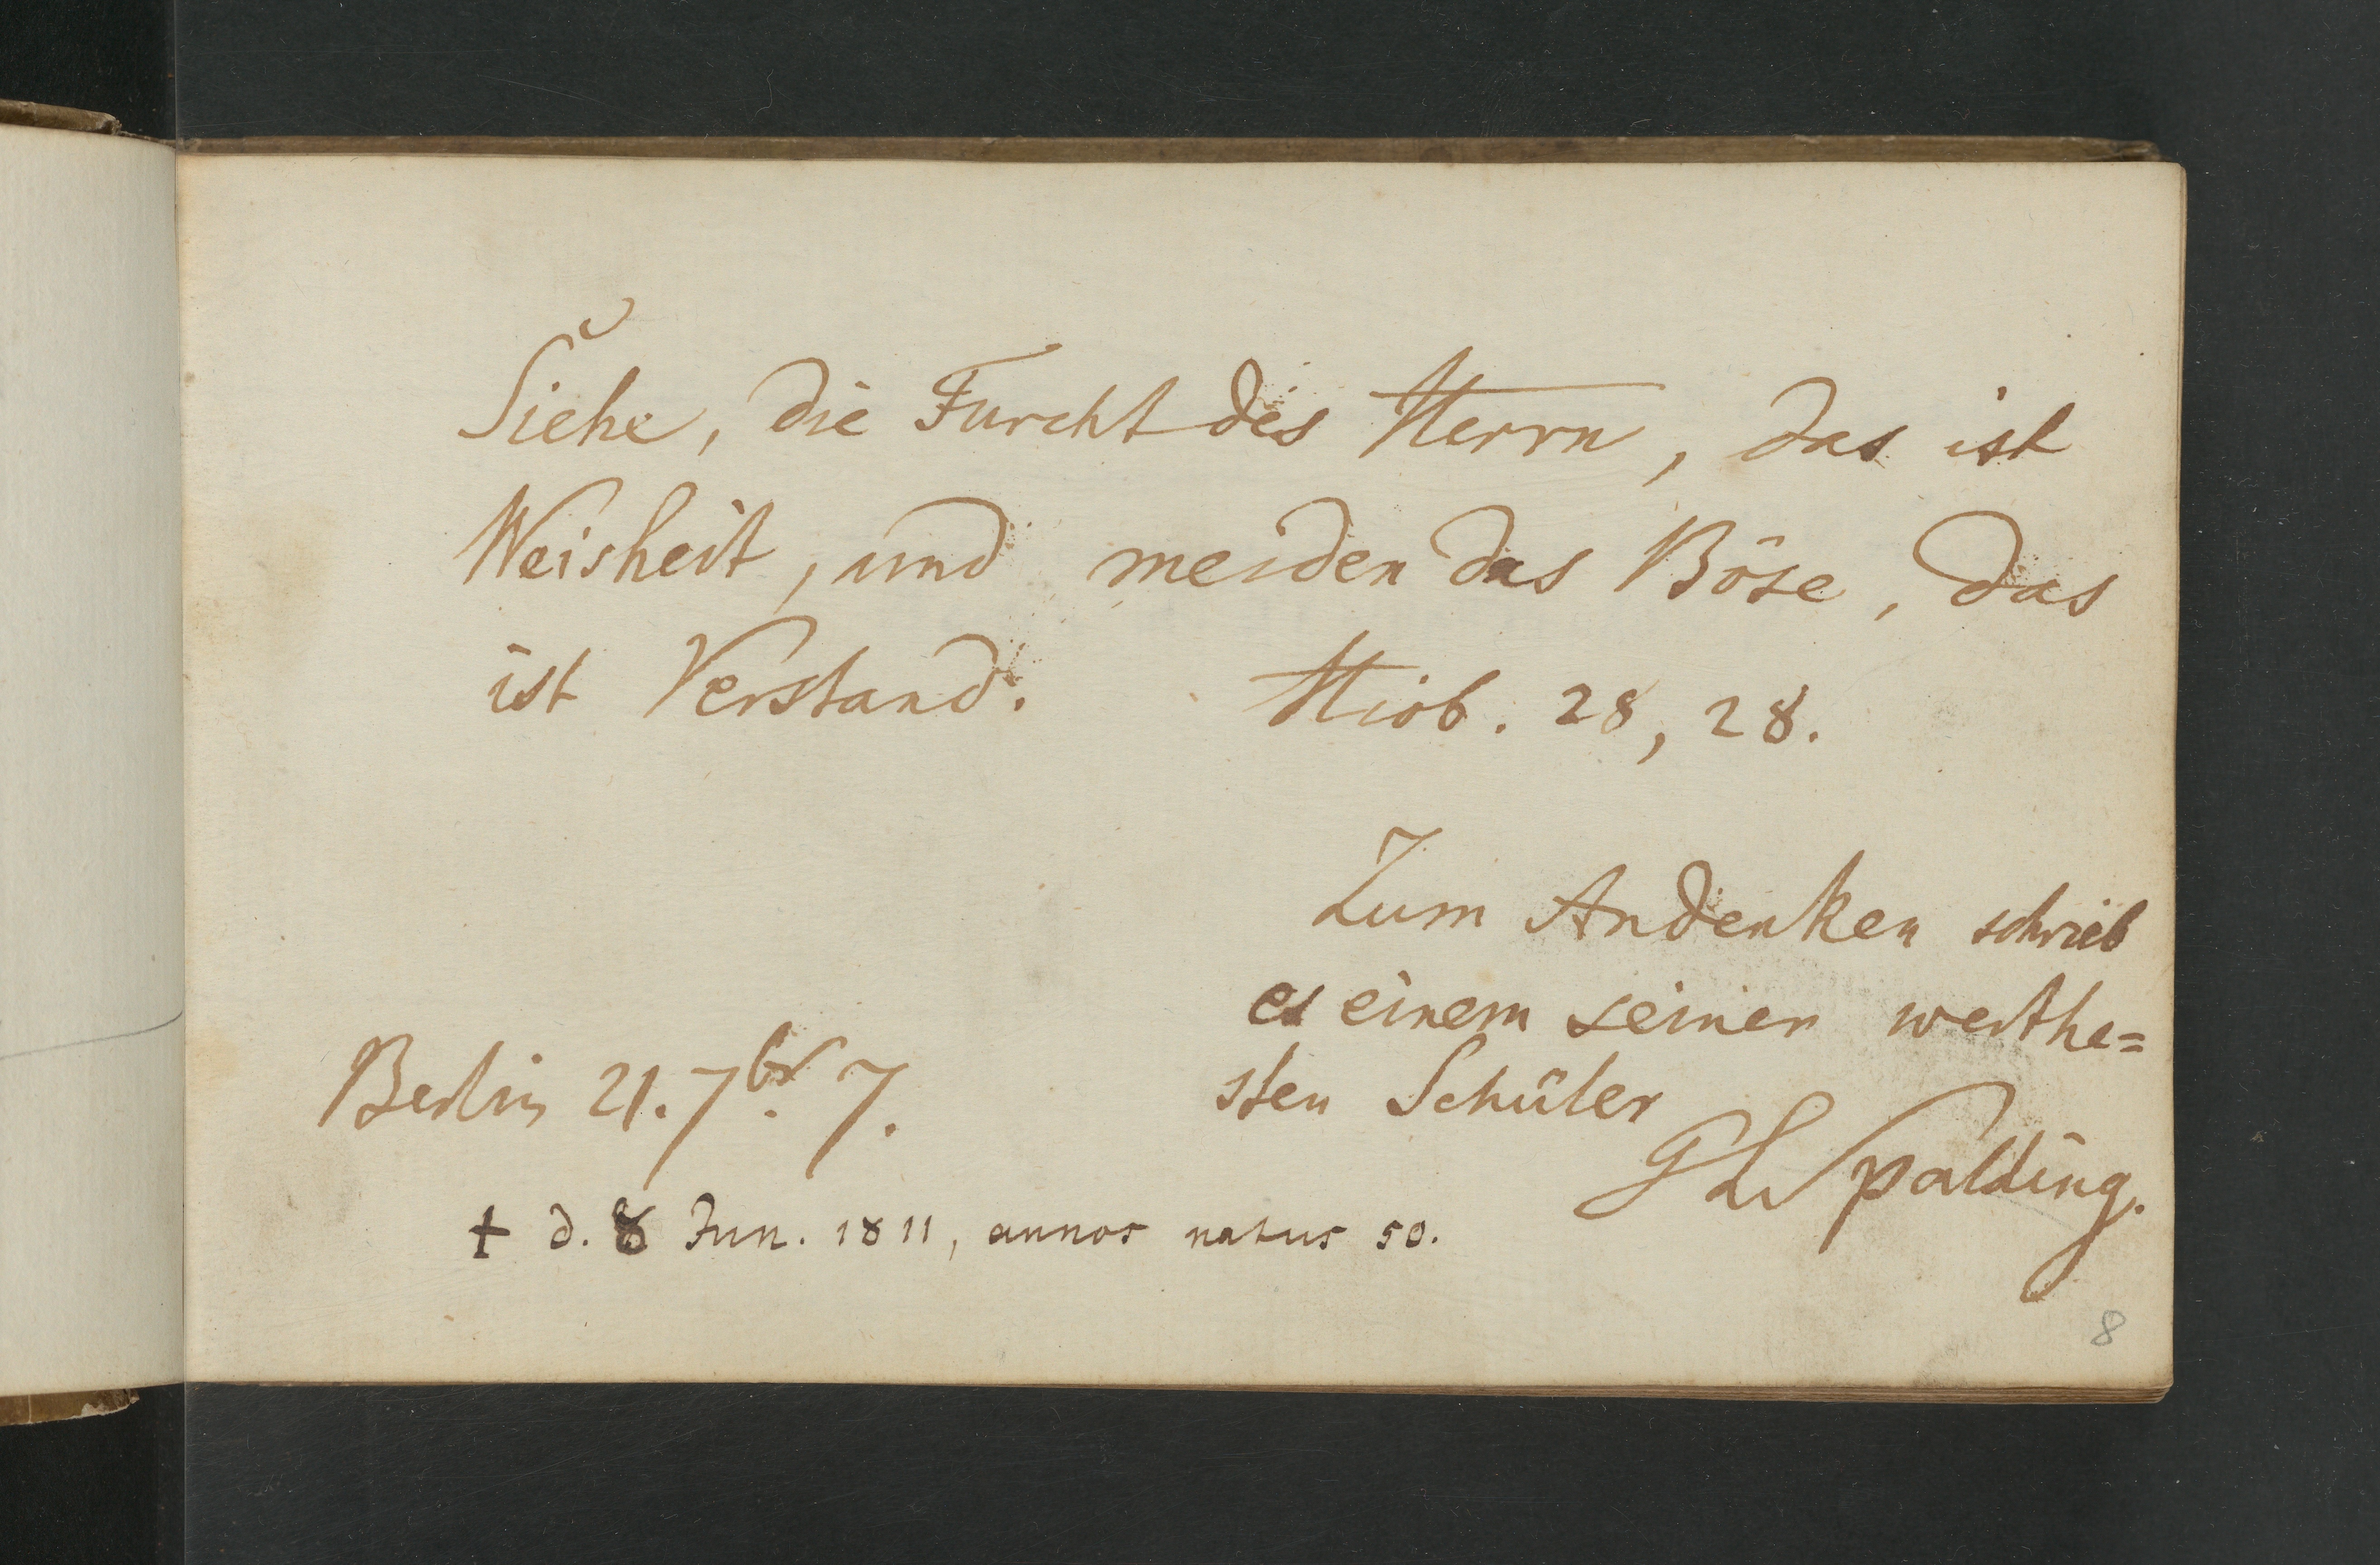 Siehe, die Furcht des Herrn, das ist
Weisheit, und meiden das Böse, das
ist Verstand. Hiob. 28, 28.
Zum Andenken schrieb
es einem seiner werthe=
sten Schüler
GLSpalding.
Berlin 21. 7br. 7.
† d. 8 Jun. 1811, annos natus 50.
8